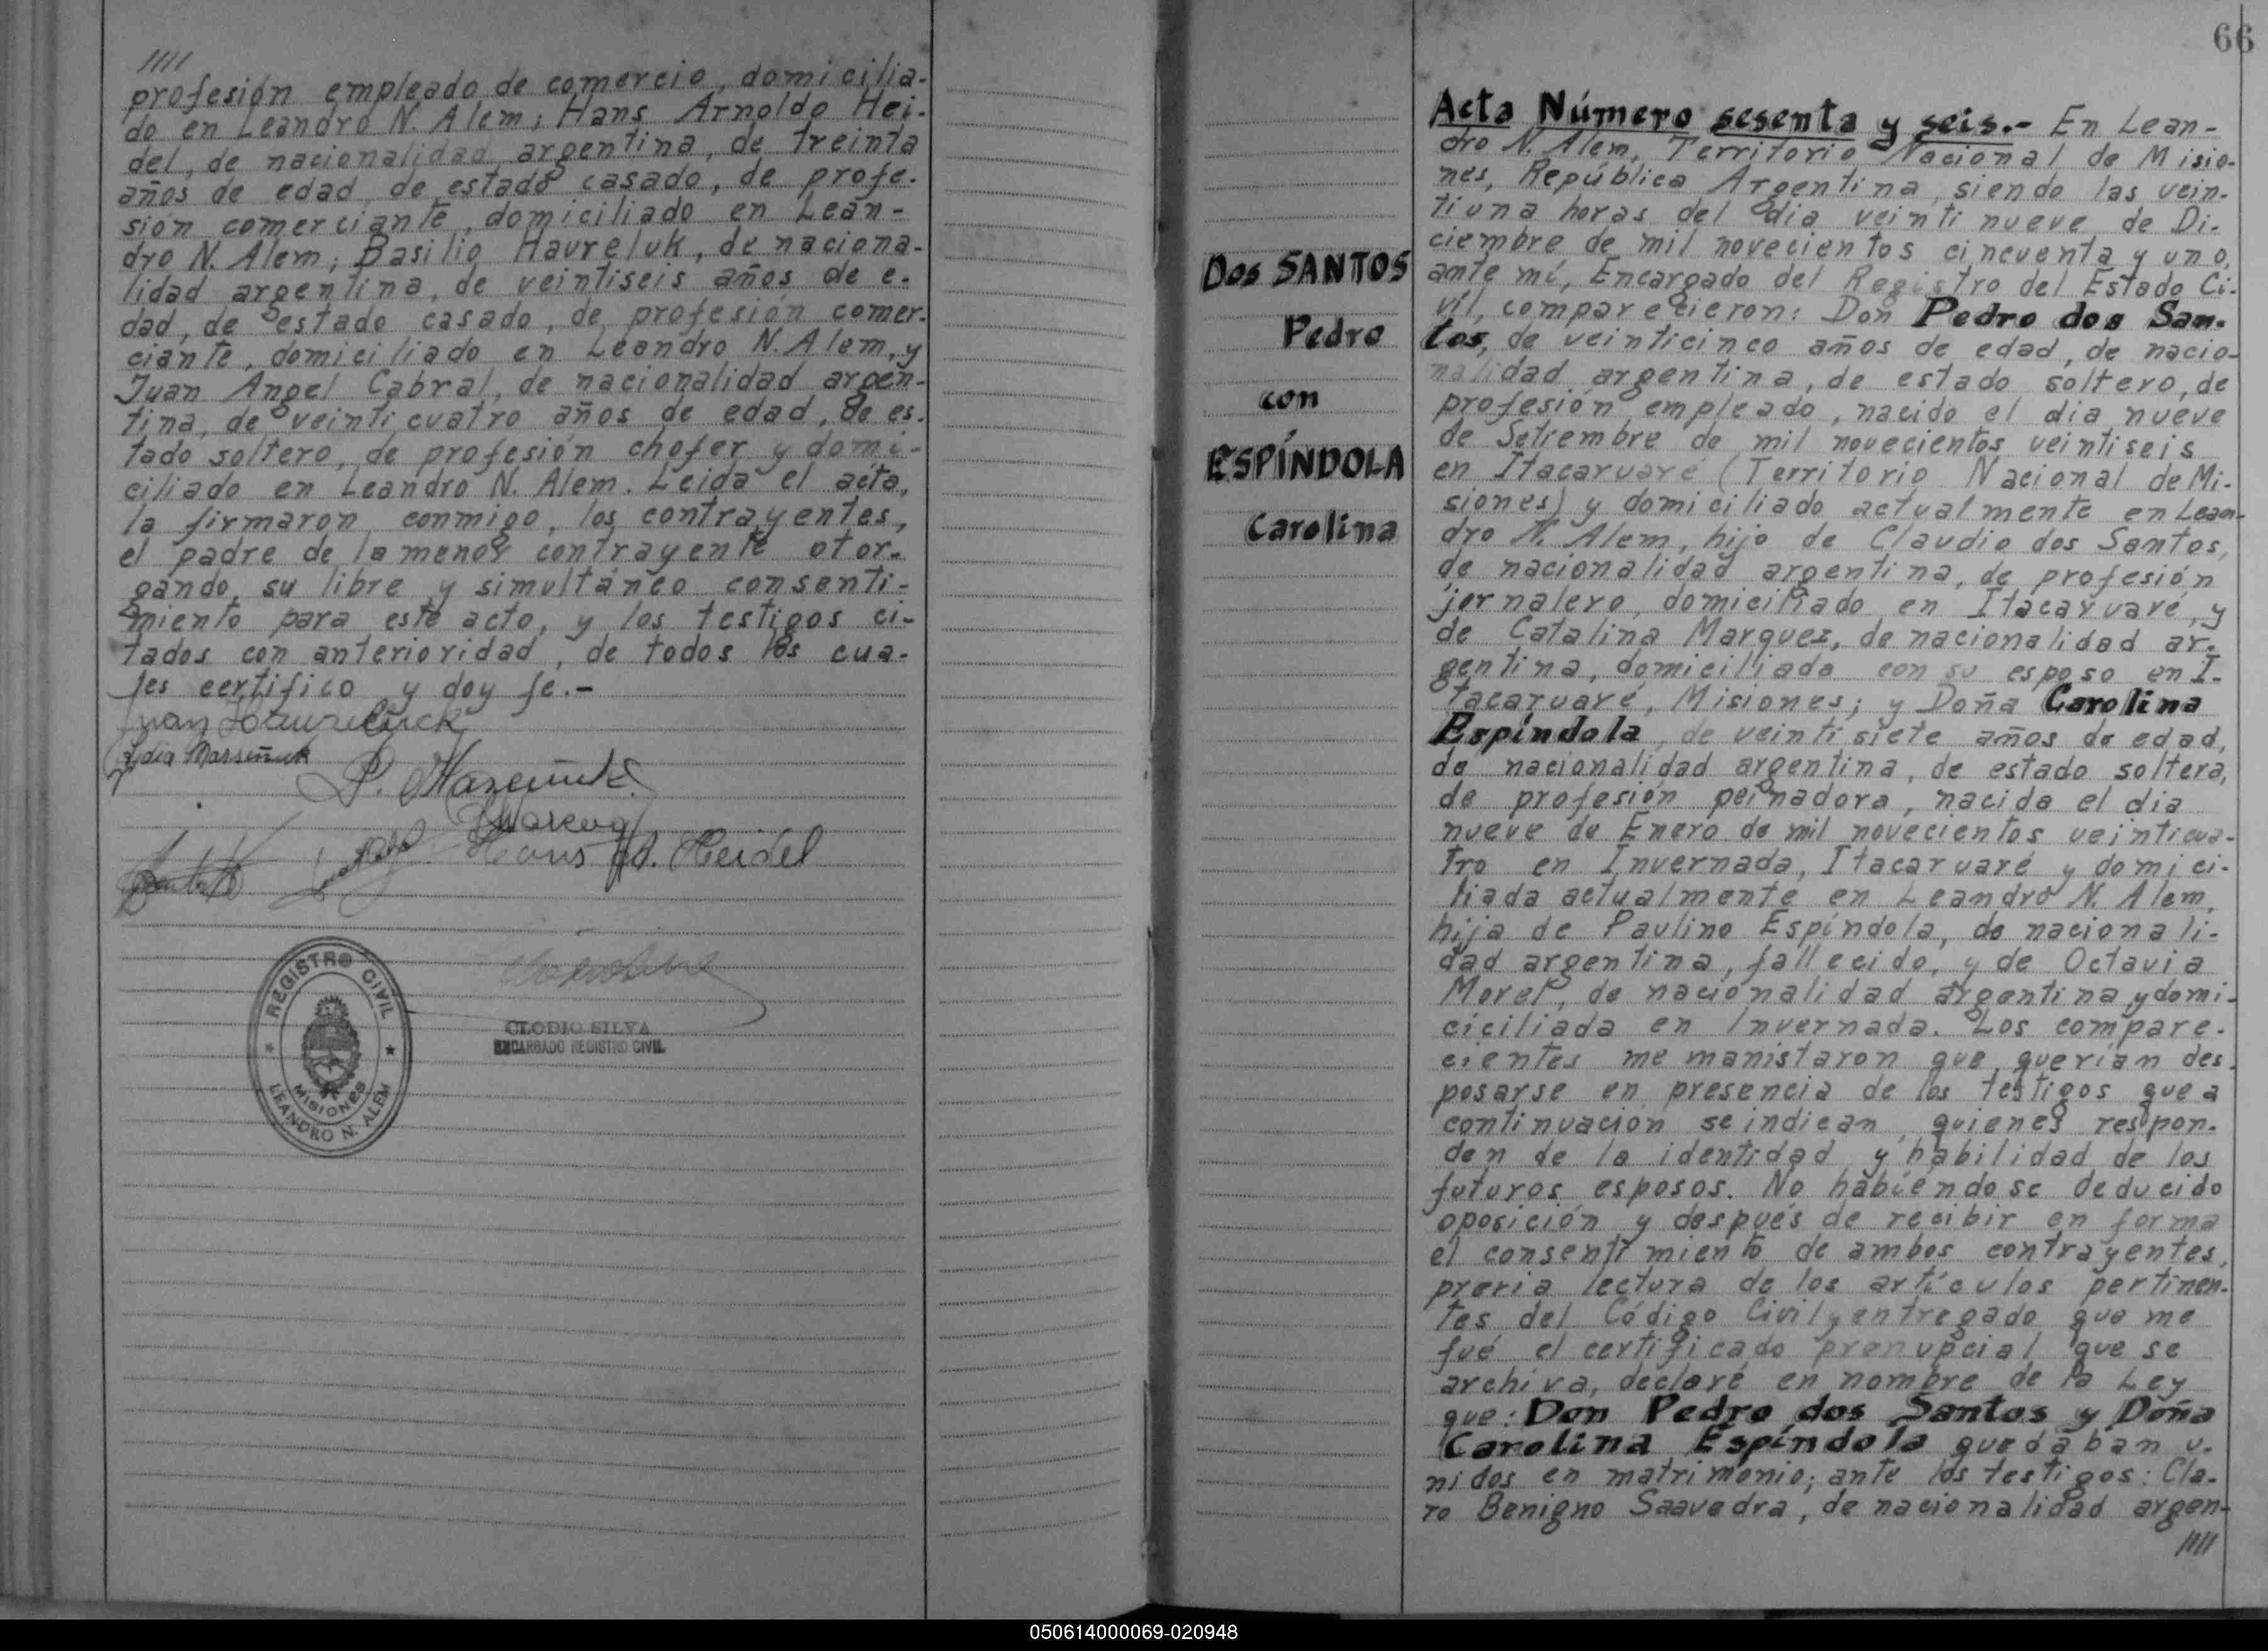 ////
profesión empleado de comercio, domicilia-
do en Leandro N. Alem; Hans Arnoldo Hei-
del, de nacionalidad argentina, de treinta
años de edad, de estado casado, de profe-
sión comerciante, domiciliado en Lean-
dro N. Alem; Basilio Havreluk, de naciona-
lidad argentina, de veintiseis años de e-
dad, de estado casado, de profesión comer-
ciante, domiciliado en Leandro N. Alem, y
Juan Angel Cabral, de nacionalidad argen-
tina, de veinticuatro años de edad, de es-
tado soltero, de profesión chofer y domi-
ciliado en Leandro N. Alem. Leida el acta,
la firmaron conmigo, los contrayentes,
el padre de la menor contrayente otor-
gando su libre y simultáneo consenti-
miento para este acto, y los testigos ci-
tados con anterioridad, de todos los cua-
les certifico y doy fe.-
Juan
Hans A. Heidel
REGISTRO CIVIL
MISIONES
LEANDRO N. ALEM
CLODIO SILVA
ENCARGADO REGISTRO CIVIL
66
Dos SANTOS
Pedro
con
ESPÍNDOLA
Carolina
Acta Número sesenta y seis.- En Lean-
dro N. Alem, Territorio Nacional de Misio-
nes, República Argentina, siendo las vein-
tiuna horas del dia veintinueve de Di-
ciembre de mil novecientos cincuenta y uno,
ante mí, Encargado del Registro del Estado Ci-
vil, comparecieron: Don Pedro dos San-
tos, de veinticinco años de edad, de nacio-
nalidad argentina, de estado soltero, de
profesión empleado, nacido el dia nueve
de Setiembre de mil novecientos veintiseis
en Itacaruaré (Territorio Nacional de Mi-
siones) y domiciliado actualmente en Lean-
dro N. Alem, hijo de Claudio dos Santos,
de nacionalidad argentina, de profesión
jornalero, domiciliado en Itacaruaré, y
de Catalina Marquez, de nacionalidad ar-
gentina, domiciliada con su esposo en I-
tacaruaré, Misiones; y Doña Carolina
Espíndola, de veintisiete años de edad,
de nacionalidad argentina, de estado soltera,
de profesión peinadora, nacida el dia
nueve de Enero de mil novecientos veinticua-
tro en Invernada, Itacaruaré y domici-
liada actualmente en Leandro N. Alem,
hija de Paulino Espíndola, de nacionali-
dad argentina, fallecido, y de Octavia
Morel, de nacionalidad argentina y domi-
ciciliada en Invernada. Los compare-
cientes me manistaron que querían des-
posarse en presencia de los testigos que a
continuación se indican, quienes respon-
den de la identidad y habilidad de los
futuros esposos. No habiéndose deducido
oposición y después de recibir en forma
el consentimiento de ambos contrayentes,
previa lectura de los artículos pertinen-
tes del Código Civil y entregado que me
fué el certificado prenupcial que se
archiva, declaré en nombre de la Ley
que: Don Pedro dos Santos y Doña
Carolina Espíndola quedaban u-
nidos en matrimonio; ante los testigos: Cla-
ro Benigno Saavedra, de nacionalidad argen-
/////
050614000069-020948